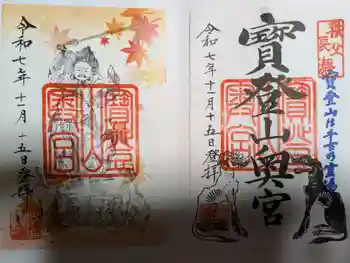 令和七年十一月十五日登拝
令和七年十一月十五日登拝
寶登山奥宮
秩父
長瀞
寶登山は千古の霊場